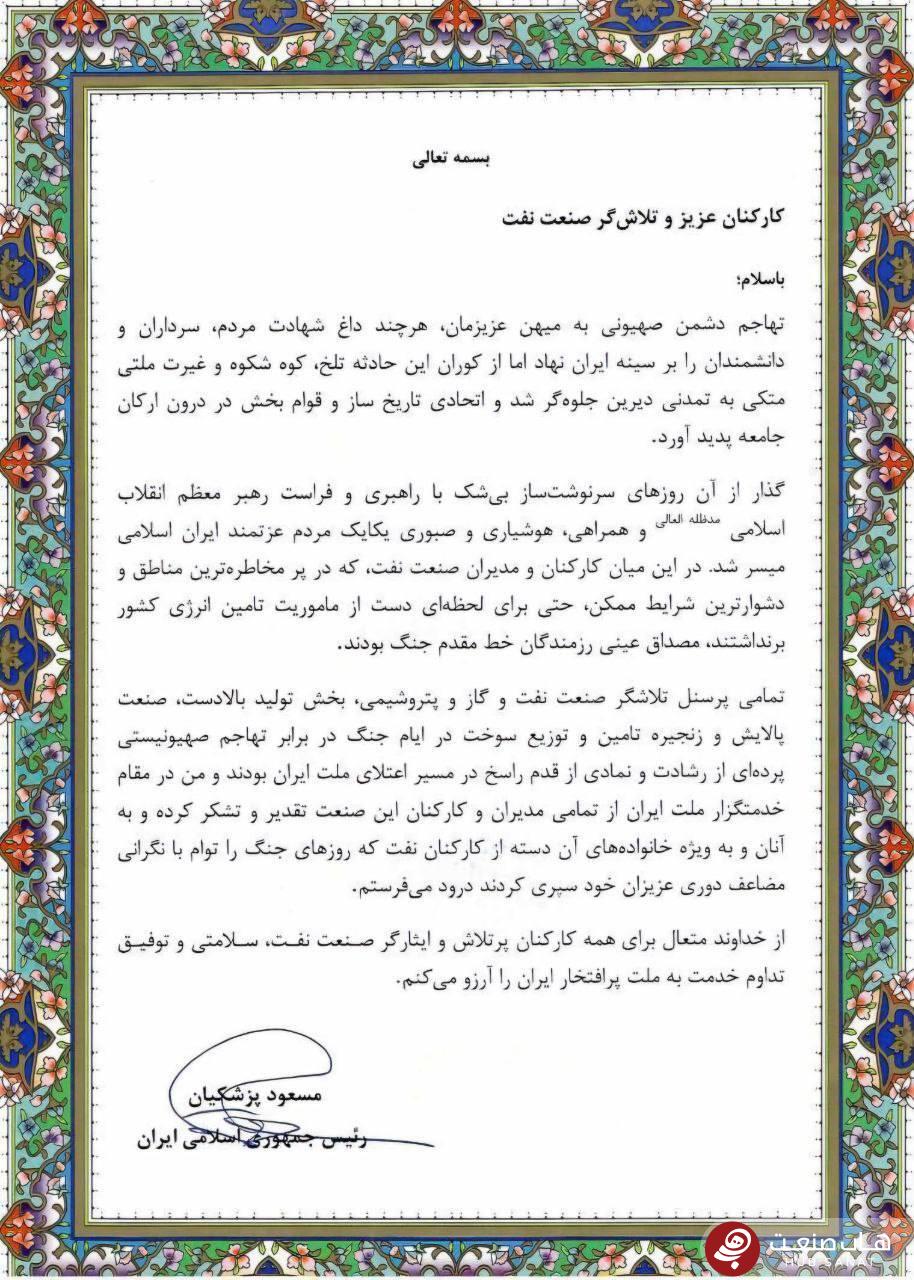 بسمه تعالی
کارکنان عزیز و تلاش‌گر صنعت نفت
باسلام؛
تهاجم دشمن صهیونی به میهن عزیزمان، هرچند داغ شهادت مردم، سرداران و
دانشمندان را بر سینه ایران نهاد اما از کوران این حادثه تلخ، کوه شکوه و غیرت ملتی
متکی به تمدنی دیرین جلوه‌گر شد و اتحادی تاریخ ساز و قوام بخش در درون ارکان
جامعه پدید آورد.
گذار از آن روزهای سرنوشت‌ساز بی‌شک با راهبری و فراست رهبر معظم انقلاب
اسلامی مدظله العالی و همراهی، هوشیاری و صبوری یکایک مردم عزتمند ایران اسلامی
میسر شد. در این میان کارکنان و مدیران صنعت نفت، که در پر مخاطره‌ترین مناطق و
دشوارترین شرایط ممکن، حتی برای لحظه‌ای دست از ماموریت تامین انرژی کشور
برنداشتند، مصداق عینی رزمندگان خط مقدم جنگ بودند.
تمامی پرسنل تلاشگر صنعت نفت و گاز و پتروشیمی، بخش تولید بالادست، صنعت
پالایش و زنجیره تامین و توزیع سوخت در ایام جنگ در برابر تهاجم صهیونیستی
پرده‌ای از رشادت و نمادی از قدم راسخ در مسیر اعتلای ملت ایران بودند و من در مقام
خدمتگزار ملت ایران از تمامی مدیران و کارکنان این صنعت تقدیر و تشکر کرده و به
آنان و به ویژه خانواده‌های آن دسته از کارکنان نفت که روزهای جنگ را توام با نگرانی
مضاعف دوری عزیزان خود سپری کردند درود می‌فرستم.
از خداوند متعال برای همه کارکنان پرتلاش و ایثارگر صنعت نفت، سلامتی و توفیق
تداوم خدمت به ملت پرافتخار ایران را آرزو می‌کنم.
مسعود پزشکیان
رئیس جمهوری اسلامی ایران
هاب صنعت
HUB SANAT